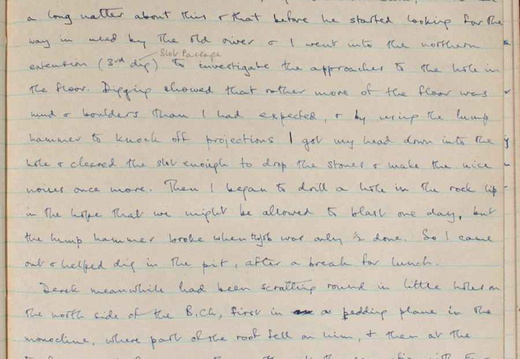 a long natter about this & that before he started looking for the
way in used by the old river & I went into the northern
Slot Passage
extension (3rd dig) to investigate the approaches to the hole in
the floor. Digging showed that rather more of the floor was
mud & boulders than I had expected, & by using the lump
hammer to knock off projections I got my head down into the
hole & cleared the slot enough to drop the stones & make the nice
noises once more. Then I began to drill a hole in the rock lip
in the hope that we might be allowed to blast one day, but
the lump hammer broke when the job was only ½ done. So I came
out & helped dig in the pit, after a break for lunch.
Derek meanwhile had been scratting round in little holes on
the north side of the B.Ch, first in a bedding plane in the
monocline, where part of the roof fell on him, & then at the